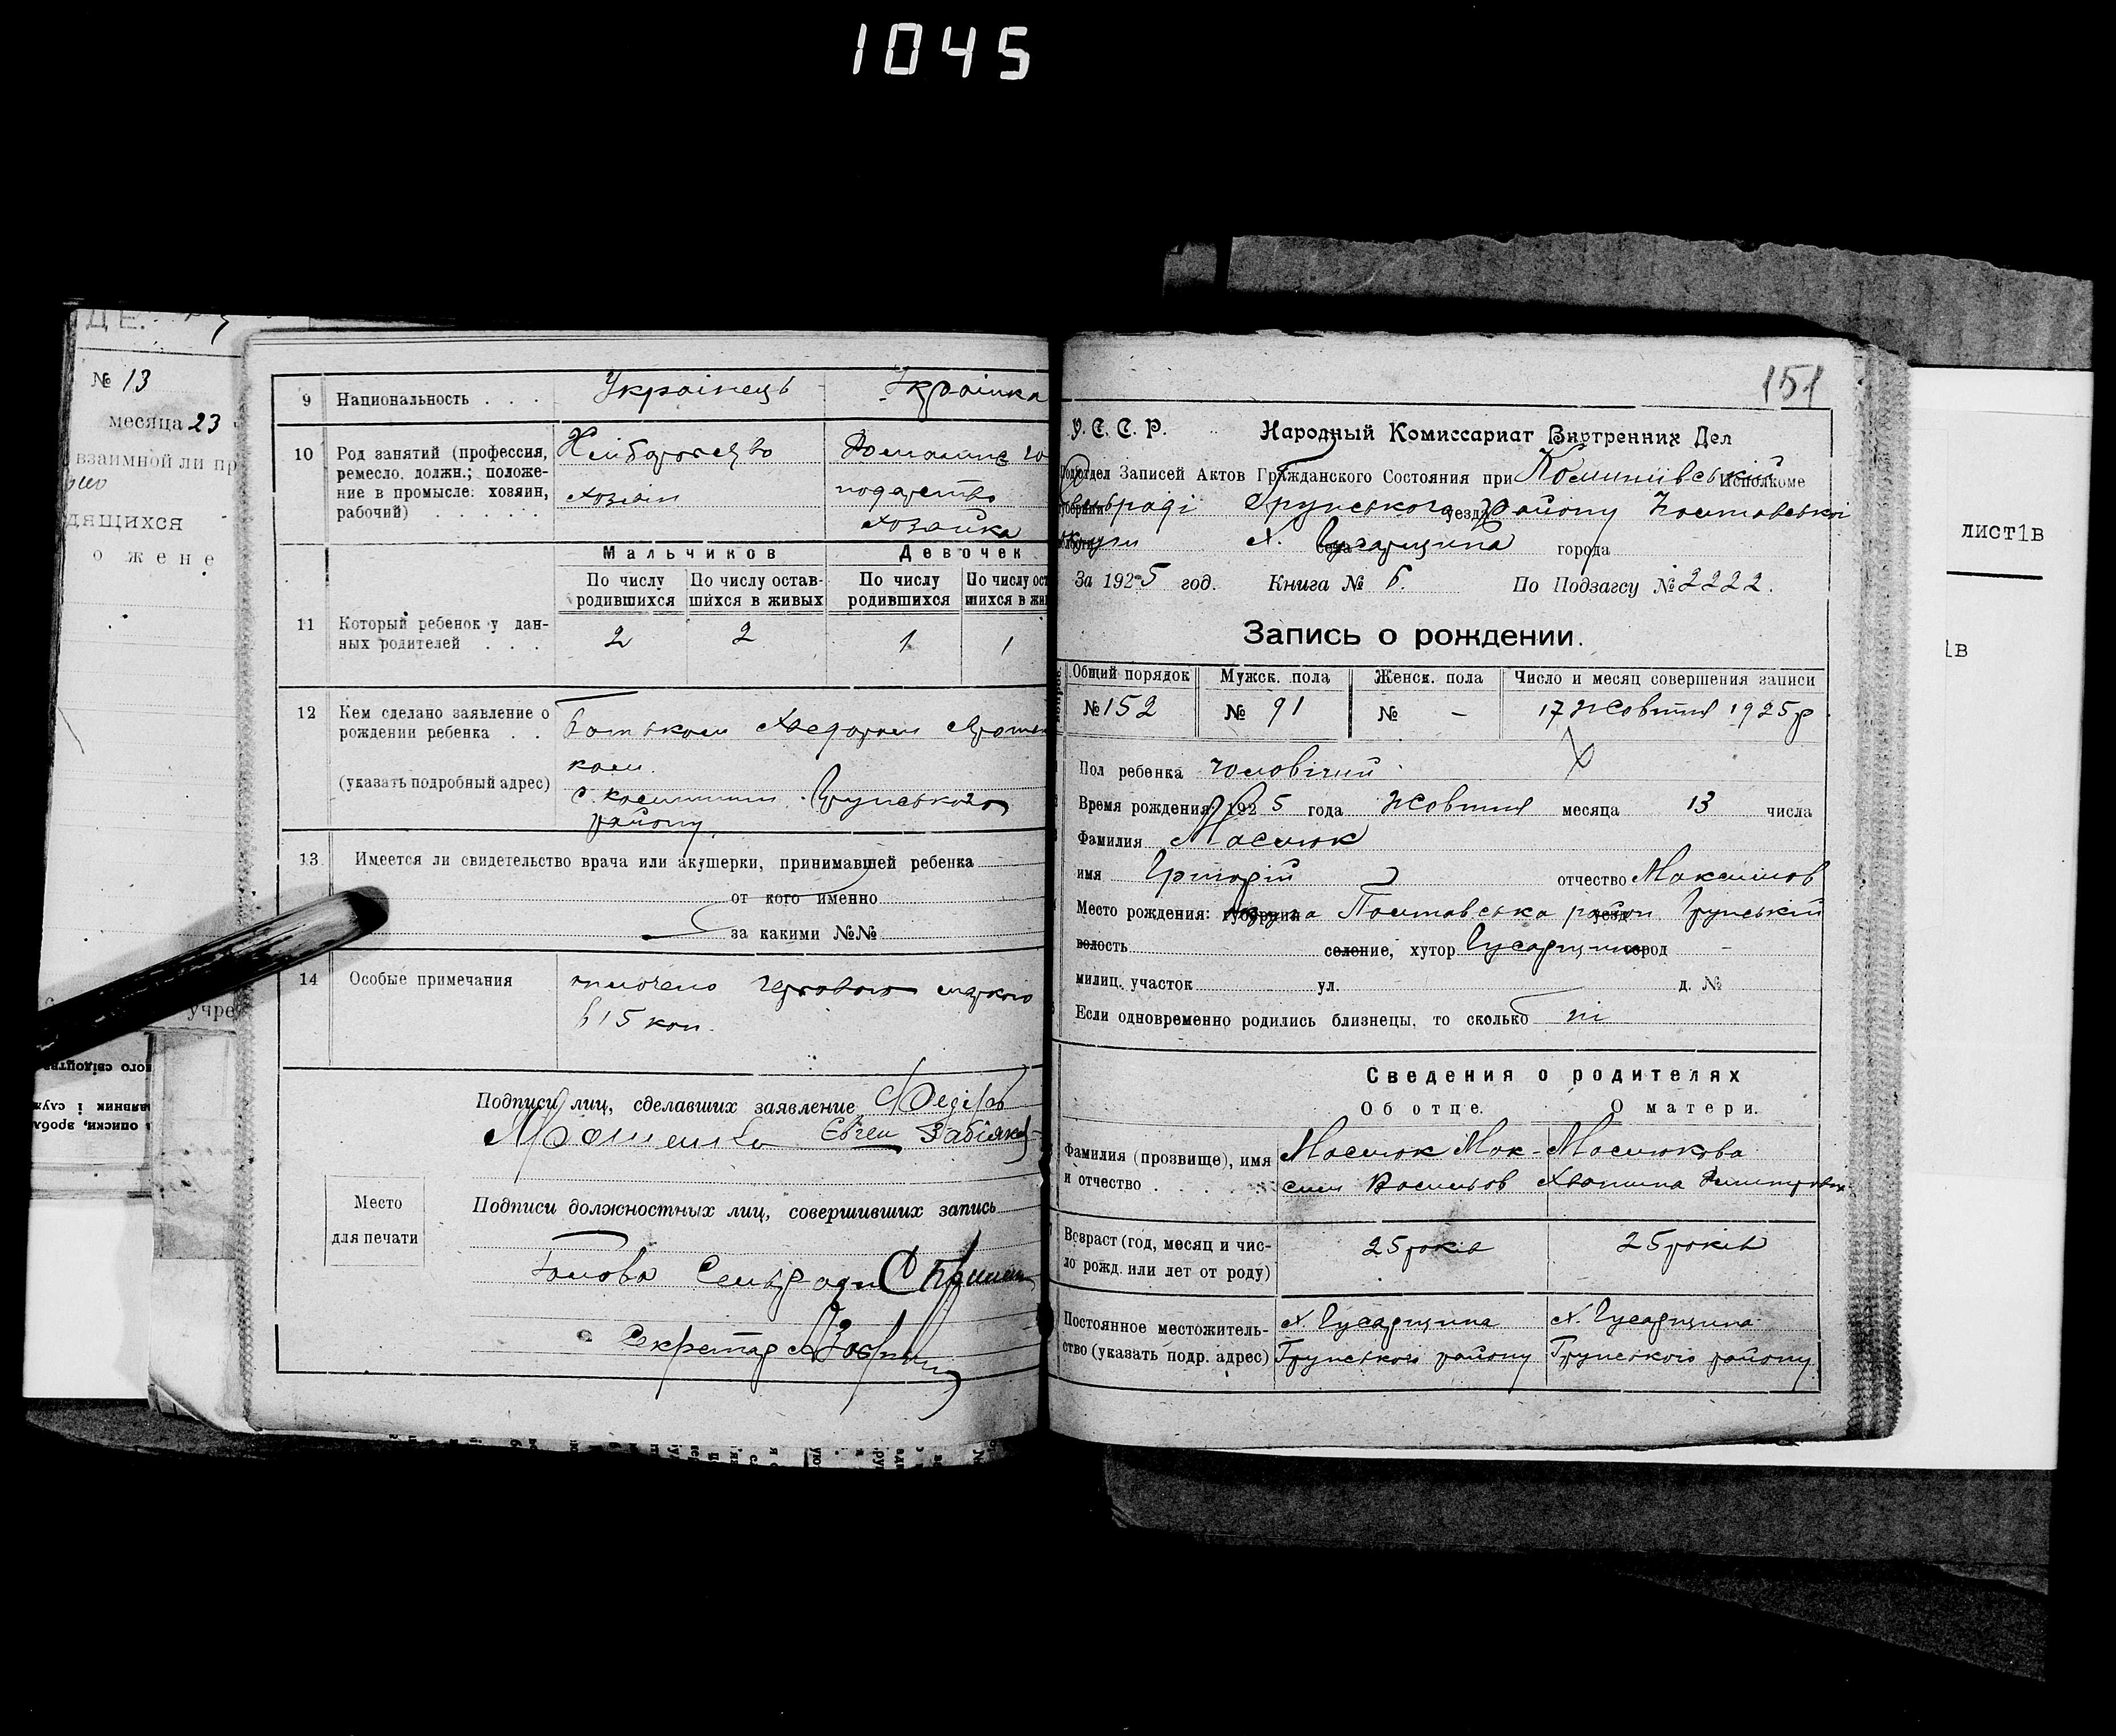 1045
ДЕ.
№ 13
месяца 23
взаимной ли пр
дящихся
о жене
учре
9 Национальность . . . Українець Українка
10 Род занятий (профессия, ремесло, должн.; положение в промысле: хозяин, рабочий) . . . . . .
Хліборобство
хозяін
Домашнє го
подарство
хозяйка
Мальчиков Девочек
По числу родившихся По числу оставшихся в живых По числу родившихся По числу ост
шихся в жи
11 Который ребенок у дан-
ных родителей . . . 2 2 1 1
12 Кем сделано заявление о
рождении ребенка . . Батьком Хведором Ярошен
ком.
(указать подробный адрес) с. Грунського
району.
13 Имеется ли свидетельство врача или акушерки, принимавшей ребенка
от кого именно
за какими №№
14 Особые примечания
оплочено гербовою маркою
в 15 коп.
Подписи лиц, сделавших заявление Федір
Ярошенко Євген Забіяка
Место
для печати
Подписи должностных лиц, совершивших запись
Голова Сельради
Секретар
151
У. С. С. Р. Народный Комиссариат Внутренних Дел
Подотдел Записей Актов Гражданского Состояния при Исполкоме
сельраді Грунського уезда району Полтавської
округи х. села Гусарщина города
За 1925 год. Книга № Б. По Подзагсу № 2222.
Запись о рождении.
Общий порядок Мужск. пола Женск. пола Число и месяц совершения записи
№ 152 № 91 № – 17 Жовтня 1925 р
Пол ребенка чоловічий
Время рождения: 1925 года Жовтня месяца 13 числа
Фамилия Маслюк
имя Григорій отчество Максимов
Место рождения: губерния Округа Полтавська район уезд Грунській
волость селение, хутор Гусарщина город –
милиц. участок ул. д. №
Если одновременно родились близнецы, то сколько ні
Сведения о родителях
Об отце. О матери.
Фамилия (прозвище), имя Маслюк Мак- Маслюкова
и отчество . . . . . сим Васильов
Возраст (год, месяц и чис-
ло рожд. или лет от роду) 25 років 25 років
Постоянное местожитель- х. Гусарщина х. Гусарщина
ство (указать подр. адрес) Грунського району Грунського району
лист1в
1в